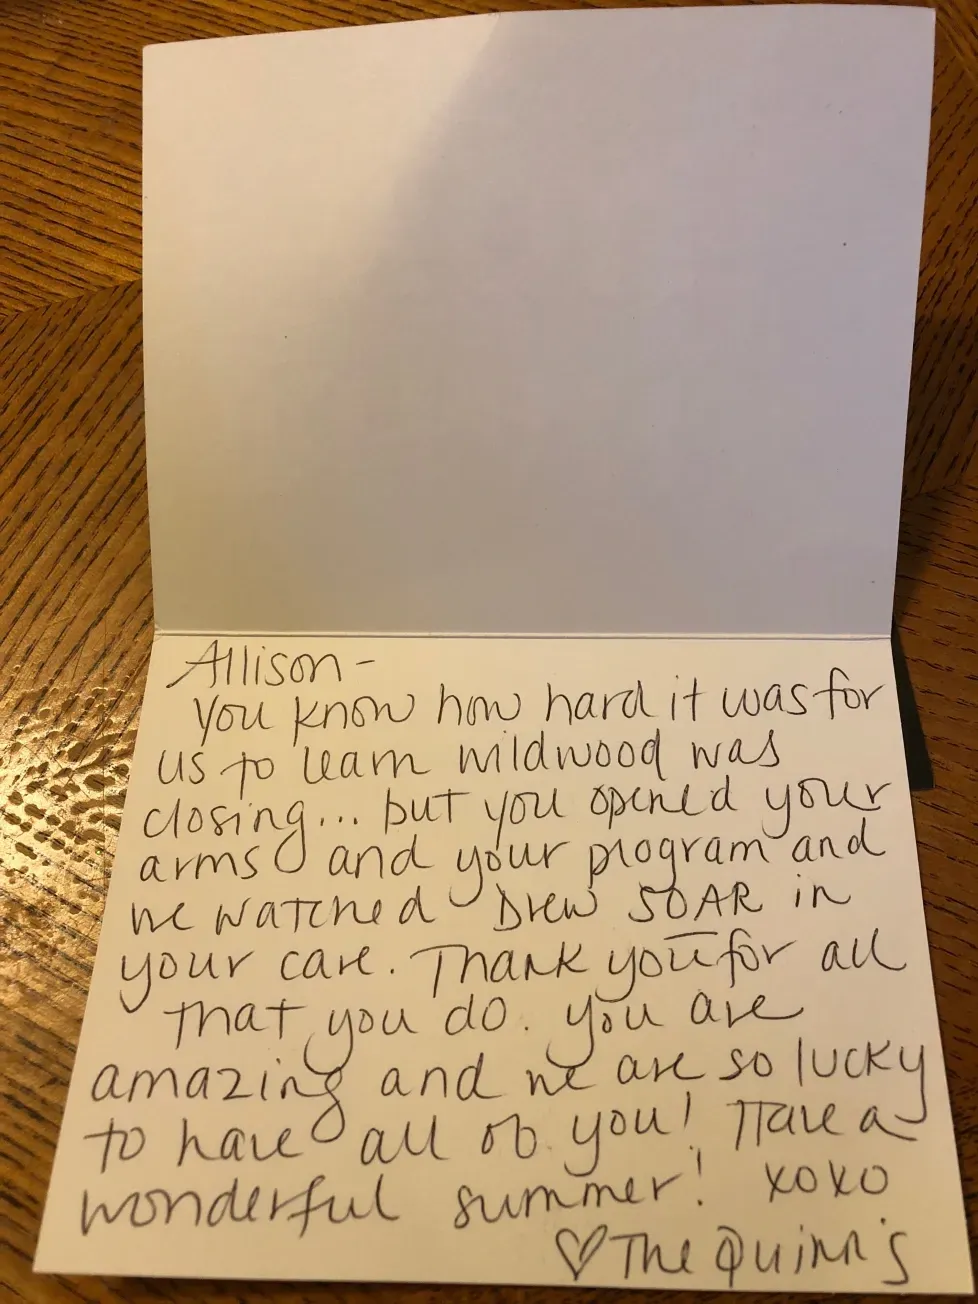 Allison-
You know how hard it was for
us to learn wildwood was
closing... but you opened your
arms and your program and
we watched Drew SOAR in
your care. Thank you for all
that you do. You are
amazing and we are so lucky
to have all of you! Have a
wonderful summer! xoxo
♡ The Quinn's